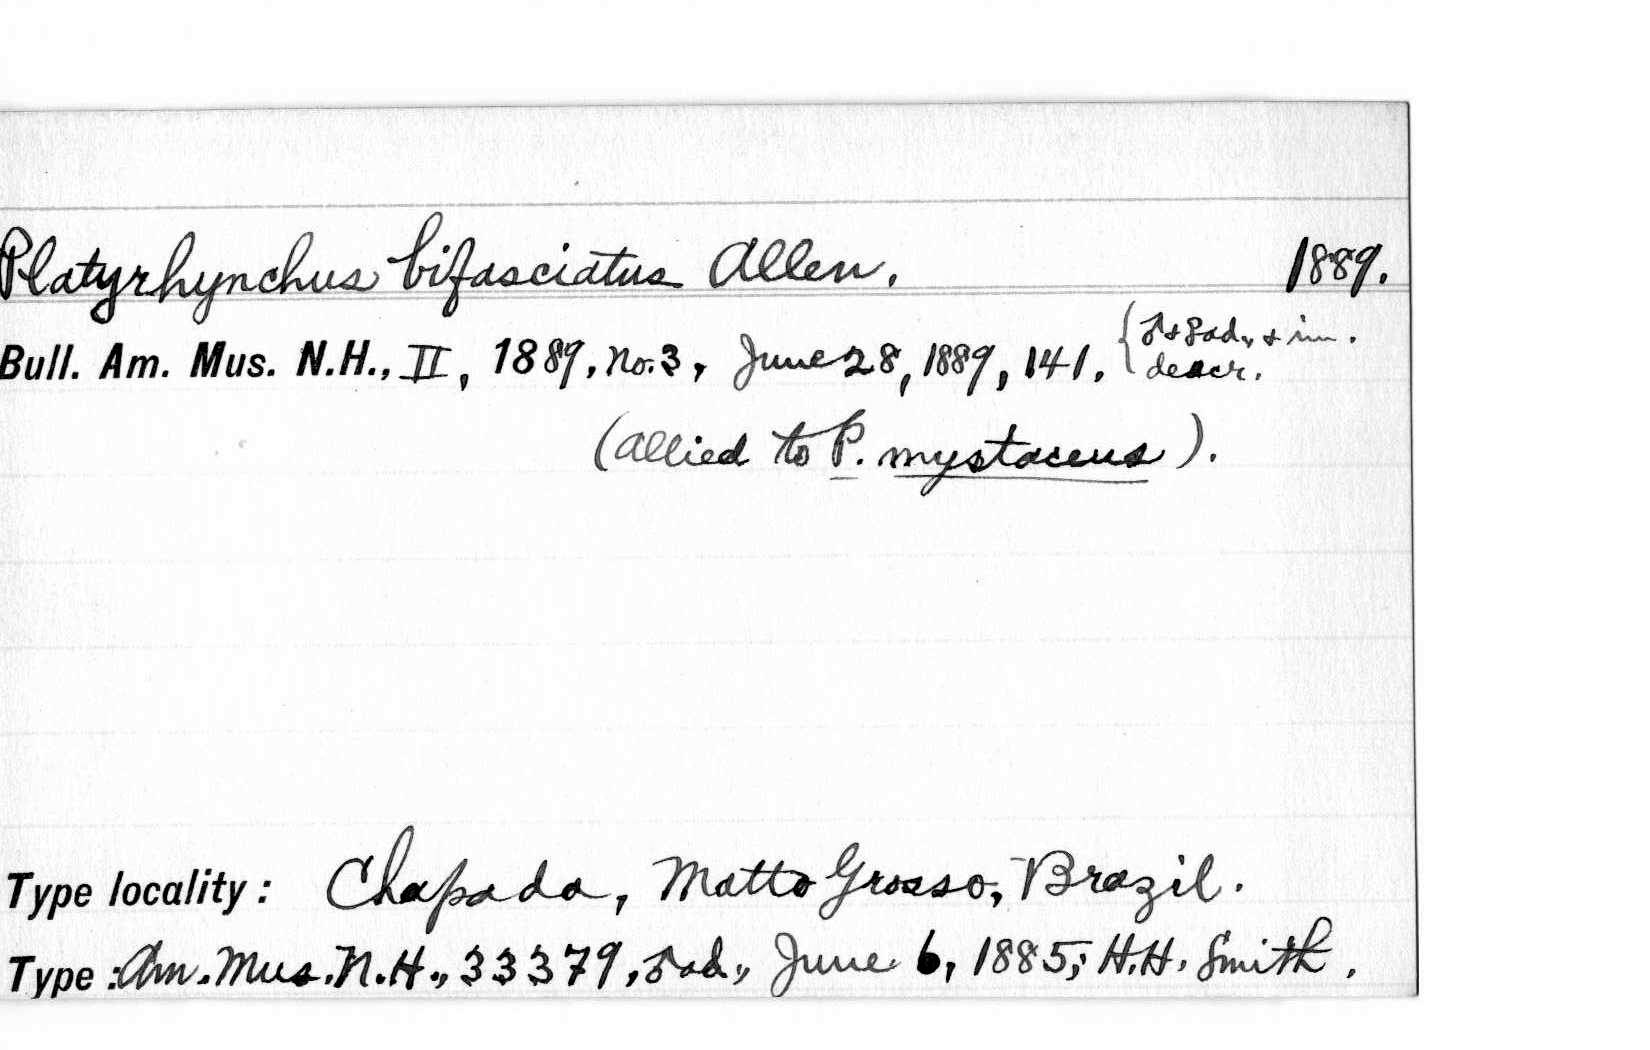 Platyrhynchus bifasciatus Allen. 1889.
Bull. Am. Mus. N.H., II, 1889, No. 3, June 28, 1889, 141. { ♂ + ♀ ad., + im. descr.
(allied to P. mystaceus).
Type locality: Chapada, Matto Grosso, Brazil.
Type: Am. Mus. N.H., 33379, ♂ ad., June 6, 1885; H.H. Smith.